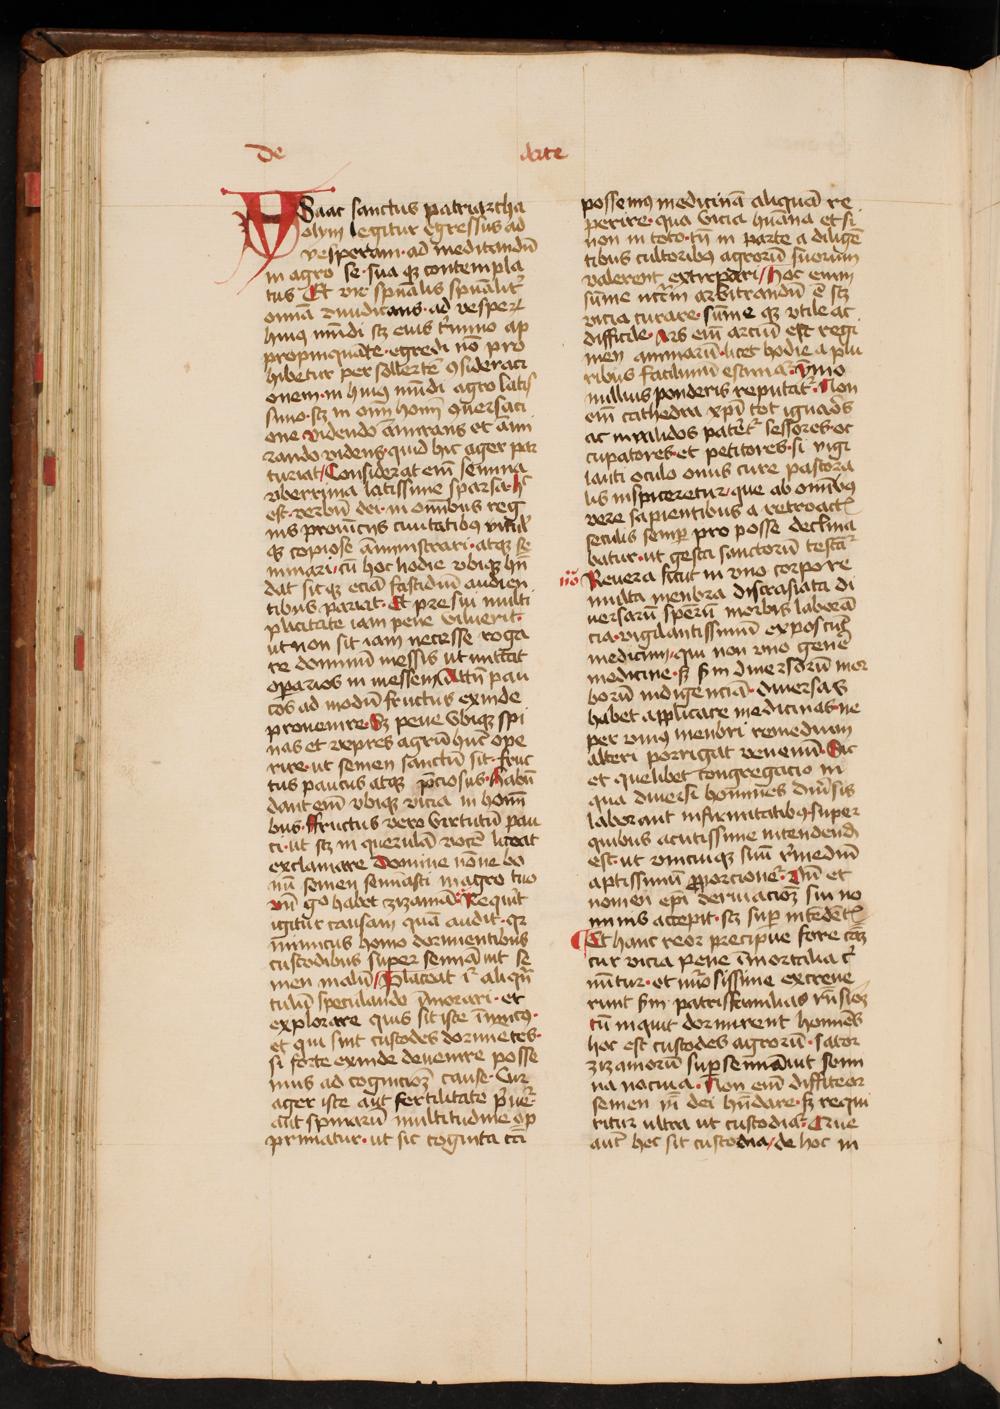 De arte
Ysaac sanctus patriarcha
olym legitur egressus ad
vesperam · ad meditandū
in agro se · sua qꝫ contempla
tus Et vir spūalis spūalitr̄
omnia diiudicans · ad vesperā
huius mūdi scꝫ eius t̄mino ap
propinquāte · egredi nō pro
hibetur per sollertē ꝯsideraci
onem · in huiꝰ mūdi agro latis
simo · scꝫ in omī homī ꝯuersaci
one videndo āmirans et āmi
rando videns · quid hic ager par
turiat / Considerat em̄ semina
vberrima latissime sparsa · hoc
est · verbum dei · in omībus reg
nis prouīciis ciuitatibꝰ
qꝫ copiose āministrari · atqꝫ se
minari · cū hoc hodie vbiqꝫ hūn
dat sitqꝫ eciā fastidiū audien
tibus pariat · Et pre sui multi
plicitate iam pene viluerit ·
ut non sit iam necesse roga
re dominū messis ut mittat
oꝑarios in messem Attn̄ pau
cos ad modū fructus exinde
prouenire · Sꝫ pene vbiqꝫ spi
nas et vepres agrū hūc ope
rire · ut semen sanctū sit · fruc
tus paucus atqꝫ p̄ciosus · Habū
dant em̄ vbiqꝫ vicia in homī
bus · ffructus vero virtutū pau
ci · ut scꝫ in querulā vocē liceat
exclamare Domine nōne bo
nū semen semīasti in agro tuo
vn̄ gͦ habet zizania · Requirit
igitur causam quā audit · qꝛ
inimicus homo dormientibus
custodibus super semīauit se
men malū / Placeat īgr̄ aliqn̄
tulū speculando īmorari · et
explorare quis sit iste inimicꝰ ·
et qui sint custodes dormiētes ·
si forte exinde deuenire posse
mus ad cognicioꝫ cause · Cur
ager iste aut fertilitate p̄uet̄
aut spinarū multitudine op
primatur · ut sic cognita
possemꝰ medicinā aliquā re
perire · qua vicia hūana etsi
non in toto · tn̄ in parte a diligē
tibus cultoribꝰ agrorū suorum
valerent extirpari / Hoc enim
sūme nc̄c̄riū arbitrandū ē scꝫ
vicia curare · sūme qꝫ vtile ac
difficile · Ars em̄ arciū est regi
men animarū · licet hodie a plu
ribus facilimū estimat̄ · ymo
nullius ponderis reputat̄ · Non
em̄ cathedra xp̄i tot ignauos
ac inualidos patet̄ sessores · oc
cupatores · et petitores · si vigi
lanti oculo onus cure pastora
lis inspiceretur · que ab omībꝰ
vere sapientibus a retroactis
seculis semꝑ pro posse declina
batur · ut gesta sanctorū testat̄
Reuera sicut in vno corpore
multa menbra discrasiata di
uersarū specierū morbis laborā
cia · vigilantissimū exposcūt
medicum / qui non vno genē
medicine · sꝫ sm̄ diuersorū mor
borū indigenciā · diuersas
habet applicare medicinas · ne
per vniꝰ menbri remedium
alteri porrigat venenū · Sic
et quelibet congregacio in
qua diuersi homines diūsis
laborant infirmitatibꝰ · super
quibus acutissime intendend
est · ut vnicuiqꝫ suū r̄mediū
aptissimū ꝓporcionet̄ · Vn̄ et
nomen ep̄i deriuacioꝫ sui no
minis accepit · scꝫ suꝑ intēdēt
Et hanc reor precipue fore cāꝫ
cur vicia pene īmortalia
nūtur · et nūosissime excreue
runt sm̄ patrisfamilias rn̄sioꝫ
cū inquit dormirent homines
hoc est custodes agrorū · sator
zizaniorū suꝑseminauit semi
na nociua · Non em̄ diffiteor
semen vn̄ dei hn̄dare · sꝫ requi
ritur ultra ut custodiat̄ · Que
aut̄ hec sit custodia / de hoc in